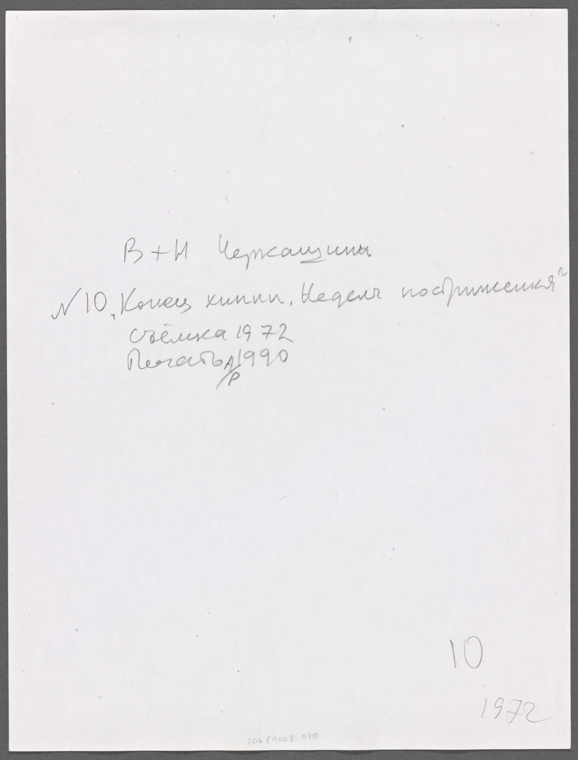 В + Н Черкашины
№10 „Конец хиппи. Неделя пострижения"
съёмка 1972
Печать 1990
А/Р
10
1972